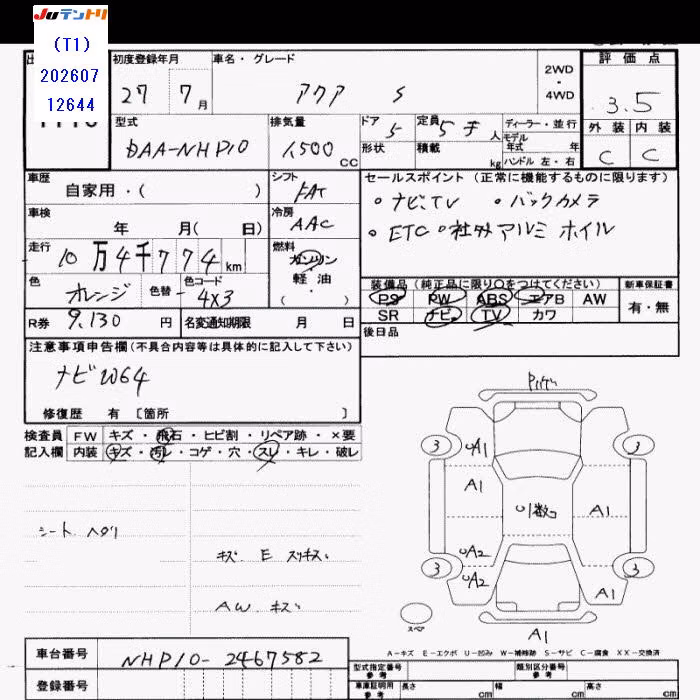 JUテントリ
(T1)
202607
12644
初度登録年月
27年 7月
車名・グレード
アクア S
2WD・4WD
評価点
3.5
外装 内装
C C
型式
DAA-NHP10
排気量
1,500 CC
ドア 5
形状
定員 5 人
積載 kg
ディーラー・並行
モデル年式 年
ハンドル 左・右
車歴
自家用・( )
シフト
FAT
車検
年 月( 日)
冷房
AAC
走行
10万4千774 km
燃料
ガソリン
軽油
・( )
色
オレンジ
色替
色コード
4X3
R券 9,130 円
名変通知期限 月 日
セールスポイント (正常に機能するものに限ります)
・ナビ、TV ・バックカメラ
・ETC ・社外アルミホイル
装備品 (純正品に限り○をつけてください)
PS PW ABS エアB AW
SR ナビ TV カワ
新車保証書
有・無
後日品
注意事項申告欄 (不具合内容等は具体的に記入して下さい)
ナビW64
修復歴 有 〔箇所 〕
検査員記入欄
FW キズ・飛石・ヒビ割・リペア跡・×要
内装 キズ・汚レ・コゲ・穴・スレ・キレ・破レ
シート ヘタリ
キズ E スリキズ
AW キズ
3 A1 3
A1
A1
A2
3 A2 3
A1
A1
スペア
A-キズ E-エクボ U-凹み W-補修跡 S-サビ C-腐食 XX-交換済
車台番号
NHP10-2467582
登録番号
型式指定番号 参考
類別区分番号 参考
車庫証明用 参考
長さ cm
幅 cm
高さ cm